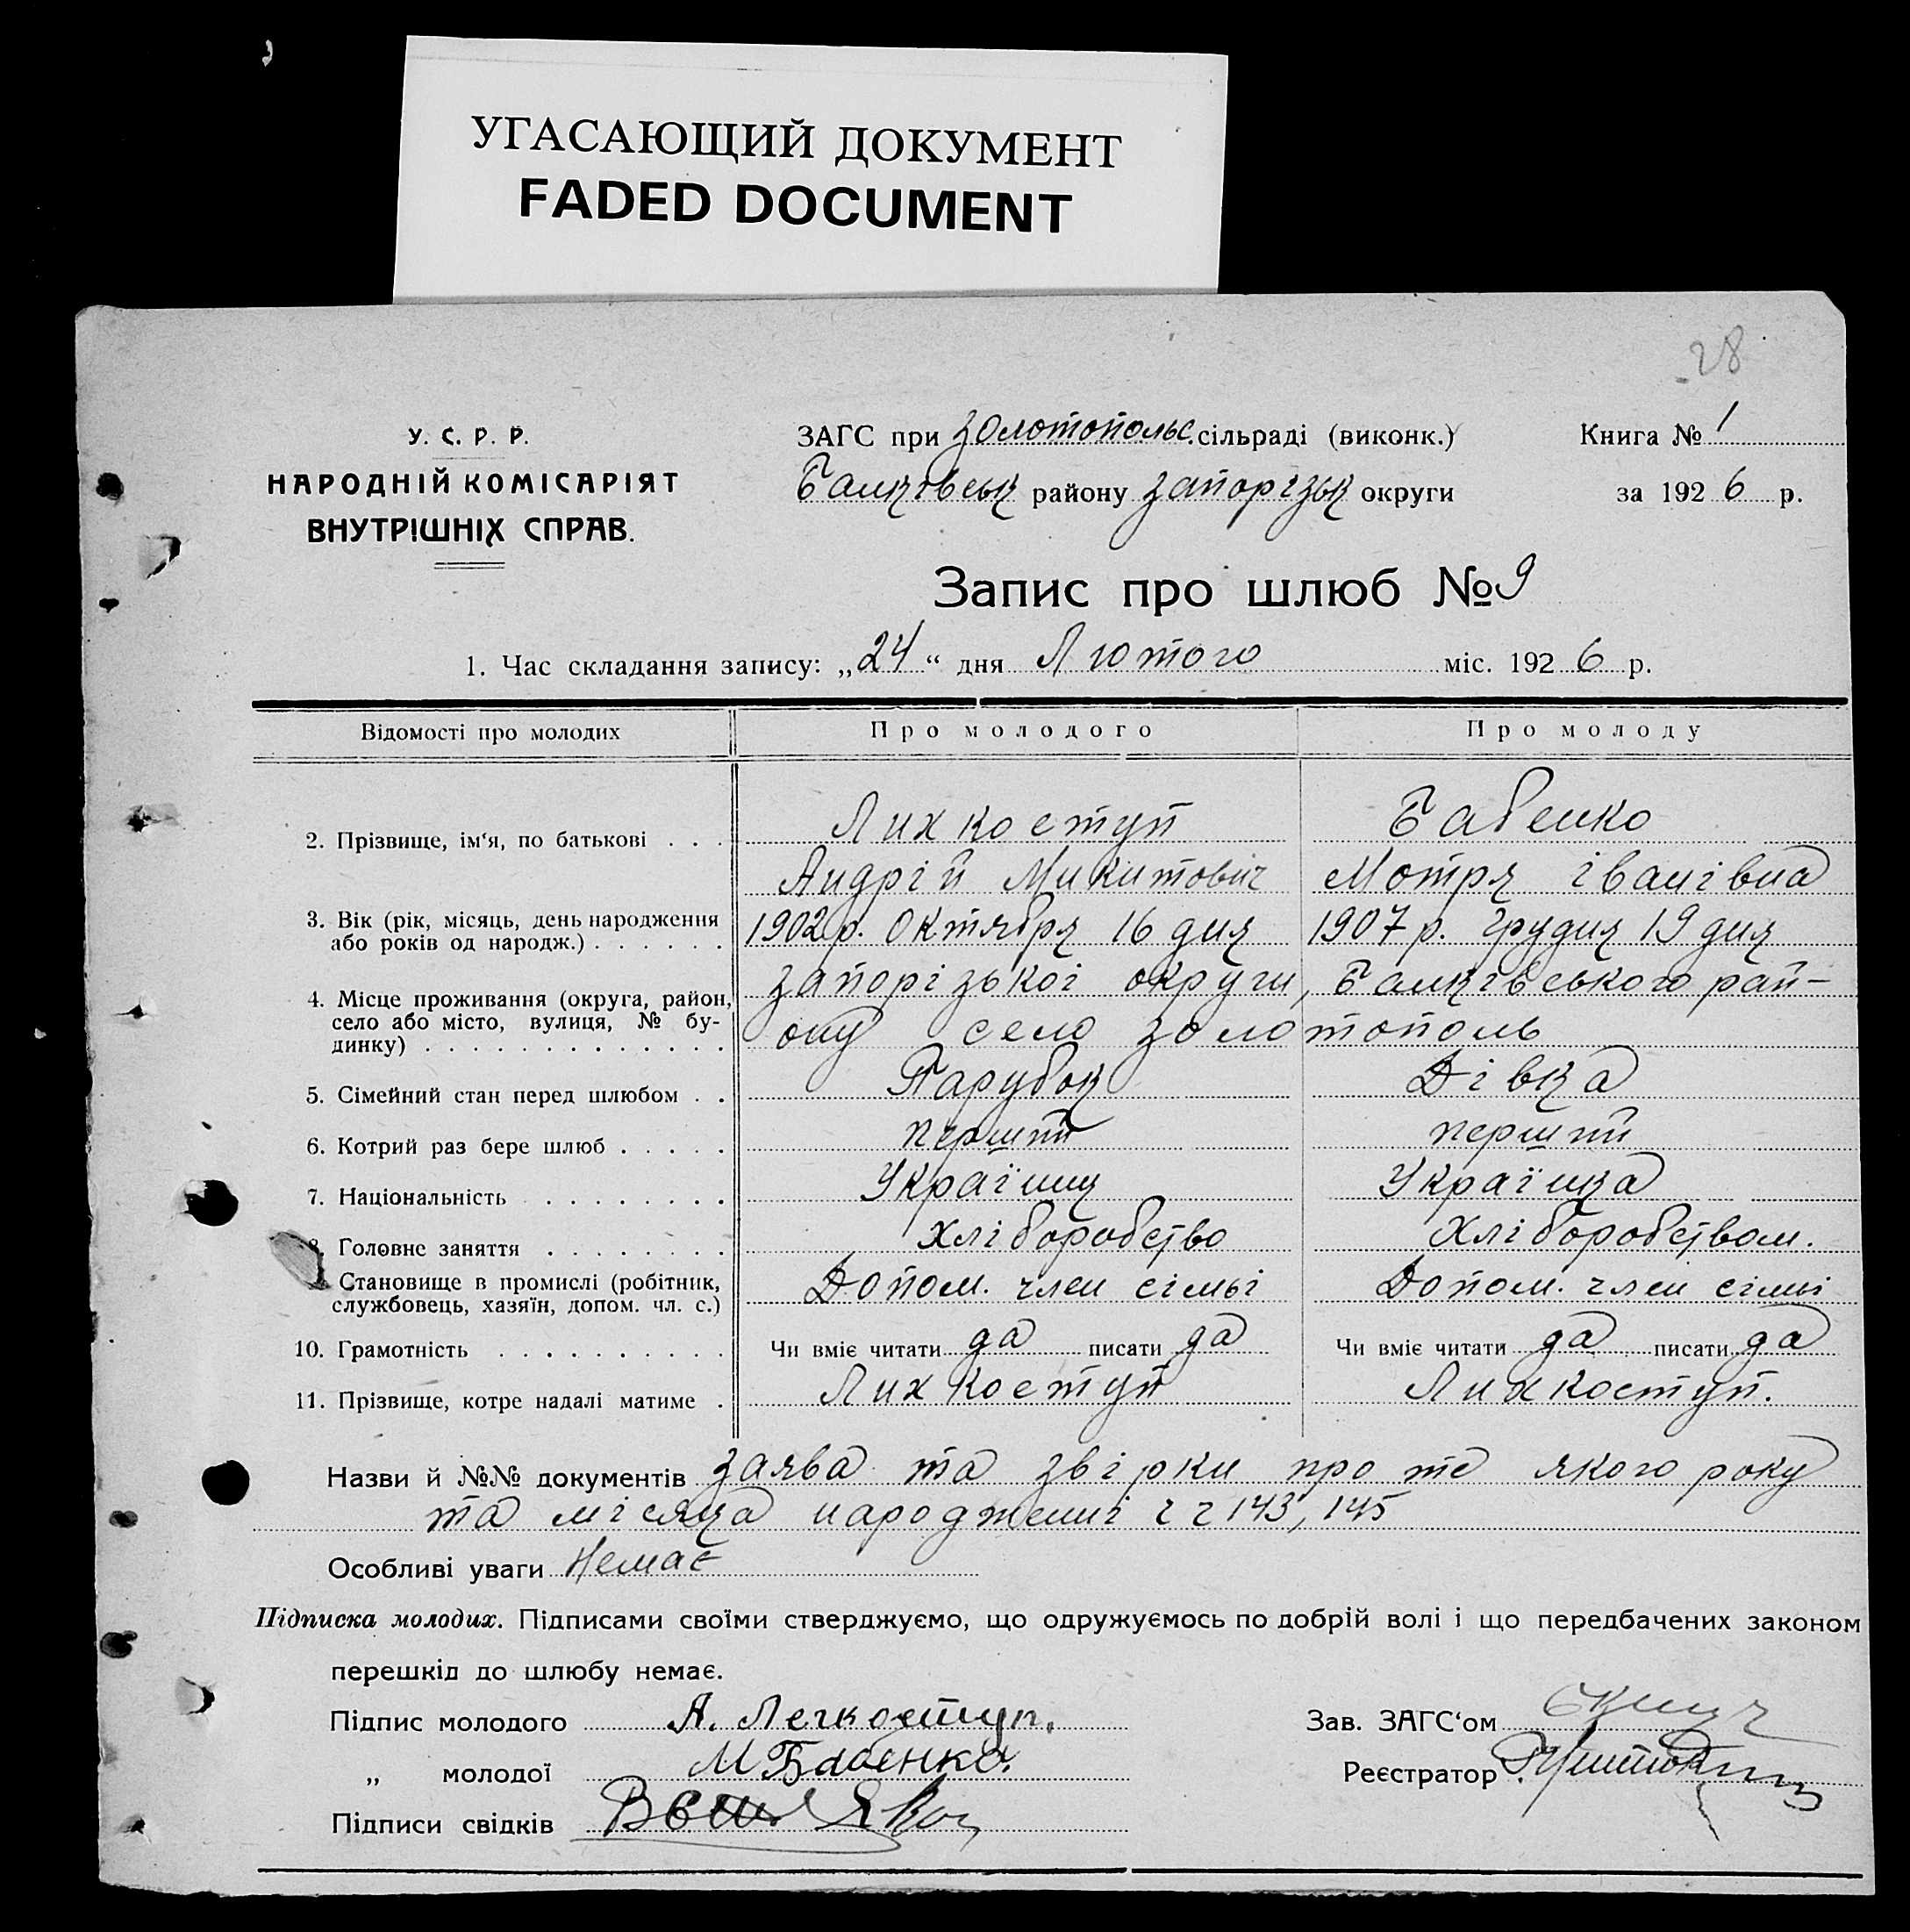 УГАСАЮЩИЙ ДОКУМЕНТ
FADED DOCUMENT
28
У. С. Р. Р.
НАРОДНІЙ КОМІСАРІЯТ
ВНУТРІШНІХ СПРАВ.
ЗАГС при золотопольс. сільраді (виконк.)
Балківськ району запорізьк округи
Книга № 1
за 1926 р.
Запис про шлюб № 9
1. Час складання запису: „24“ дня Лютого міс. 1926 р.
Відомості про молодих Про молодого Про молоду
2. Прізвище, ім‘я, по батькові . . . Лихкоступ Бабенко
Андрій Микитович Мотря іванівна
3. Вік (рік, місяць, день народження або років од народж.) . . . . . . 1902р. Октября 16 дня 1907 р. грудня 19 дня
4. Місце проживання (округа, район, село або місто, вулиця, № будинку) . . . . . . . . . . . . . запорізькоі округи, Балківського рай-
ону село золотополь
5. Сімейний стан перед шлюбом . . Парубок Дівка
6. Котрий раз бере шлюб . . . . . перший перший
7. Національність . . . . . . . . Українц Українка
8. Головне заняття . . . . . . . . Хліборобство Хліборобством.
Становище в промислі (робітник, службовець, хазяїн, допом. чл. с.) Допом. член сімьі Допом. член сімьі
10. Грамотність . . . . . . . . . . Чи вміє читати да писати да Чи вміє читати да писати да
11. Прізвище, котре надалі матиме . Лихкоступ Лихкоступ.
Назви й №№ документів заява та звірки про те якого року
та місяца народженні ч ч 143, 145
Особливі уваги Немає
Підписка молодих. Підписами своїми стверджуємо, що одружуємось по добрій волі і що передбачених законом
перешкід до шлюбу немає.
Підпис молодого А. Легкоступ.
„ молодої М Бабенко.
Підписи свідків
Зав. ЗАГС‘ом
Реєстратор